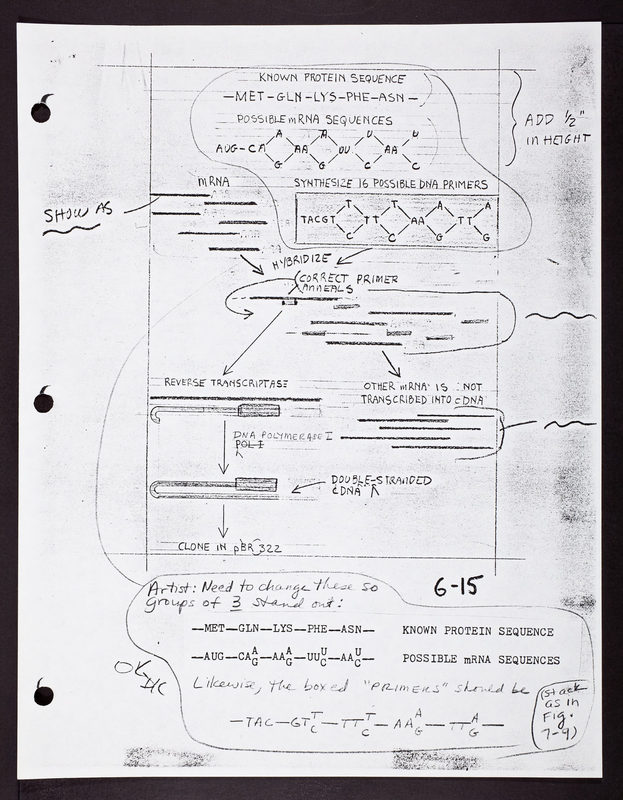 KNOWN PROTEIN SEQUENCE
—MET–GLN–LYS–PHE–ASN–
POSSIBLE mRNA SEQUENCES
A A U U
AUG–CA AA UU AA
G G C C
ADD ½"
IN HEIGHT
mRNA
SYNTHESIZE 16 POSSIBLE DNA PRIMERS
T T A A
TACGT TT AA TT
C C G G
SHOW AS
HYBRIDIZE
CORRECT PRIMER
ANNEALS
REVERSE TRANSCRIPTASE
OTHER mRNA IS NOT
TRANSCRIBED INTO cDNA
DNA POLYMERASE I
POL I
DOUBLE-STRANDED
cDNA
CLONE IN pBR322
6-15
Artist: Need to change these so
groups of 3 stand out:
—MET—GLN—LYS—PHE—ASN— KNOWN PROTEIN SEQUENCE
A A U U
—AUG—CA—AA—UU—AA— POSSIBLE mRNA SEQUENCES
G G C C
OK
Likewise, the boxed "PRIMERS" should be
T T A A
—TAC—GT—TT—AA—TT—
C C G G
(stack
as in
Fig.
7-9)